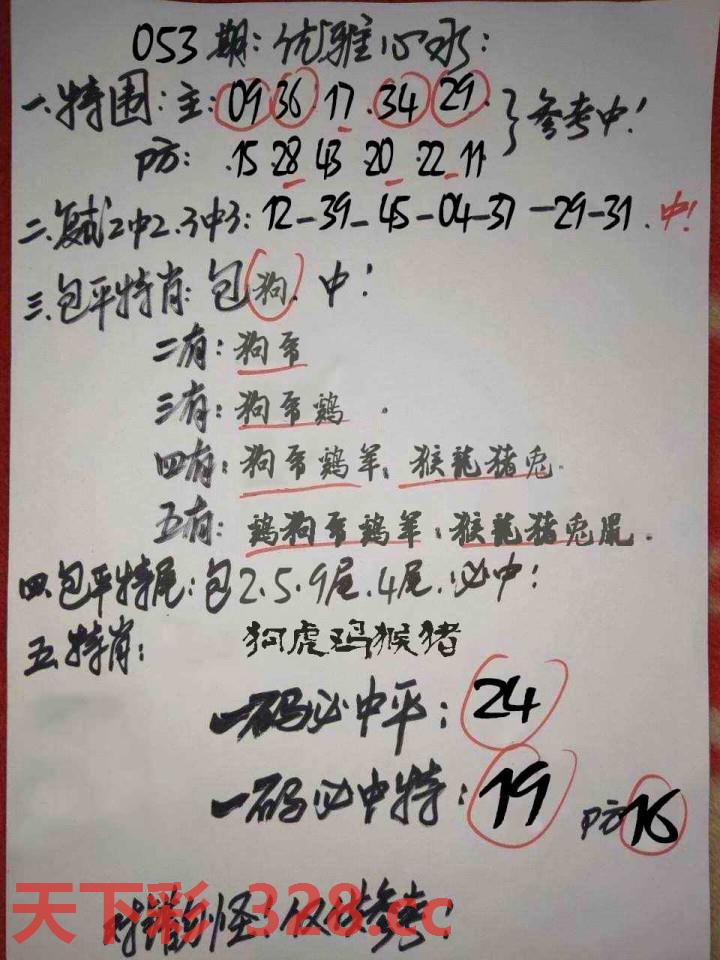 053期:优雅心水:
一.特围:主:09 36.17.34 29.}参考中!
防:.15.28 43.20.22.11
二.复式2中2.3中3:12-39-45-04-37-29-31.中!
三.包平特肖:包狗.中!
二有:狗帝
三有:狗帝鸡.
四有:狗帝鸡羊,猴龍猪兔.
五有:鸡狗帝鸡羊,猴龍猪兔鼠.
四.包平特尾:包2.5.9尾.4尾.必中!
五.特肖:狗虎鸡猴猪
一码必中平:24
一码必中特:19 防16
错勿怪!仅供参考!
天下彩 328.cc